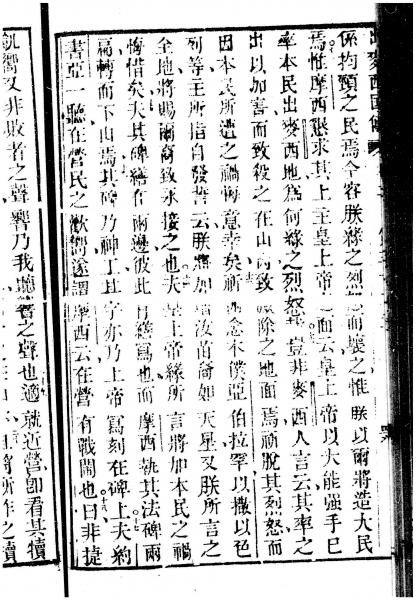 出麥西國傳
係拘頸之民焉今容朕發之烈而壞之惟朕以爾將造大民
焉惟摩西懇求其上主皇上帝而云皇上帝以大能強手已
率本民出麥西地爲何發之烈怒豈非麥西人言云其率之
出以加害而致殺之在山而致滅除之地面焉祈脫其烈怒而
因本民所遭之禍悔意幸矣祈念本僕亞伯拉罕以撒以色
列等主所指自發誓云朕將加汝苗裔如天星又朕所言之
全地將賜爾裔致永接之也夫皇上帝緣所言將加本民之禍
悔惜矣夫其碑繕在兩邊彼此繕焉也而摩西執其法碑兩
扁轉而下山焉其碑乃神工其字亦乃上帝寫刻在碑上夫約
書亞一聽在營民之歡響遂謂摩西云在營有戰鬧也曰非捷
飢響又非敗者之聲響乃我聽聲之聲也適就近營卽看其犢